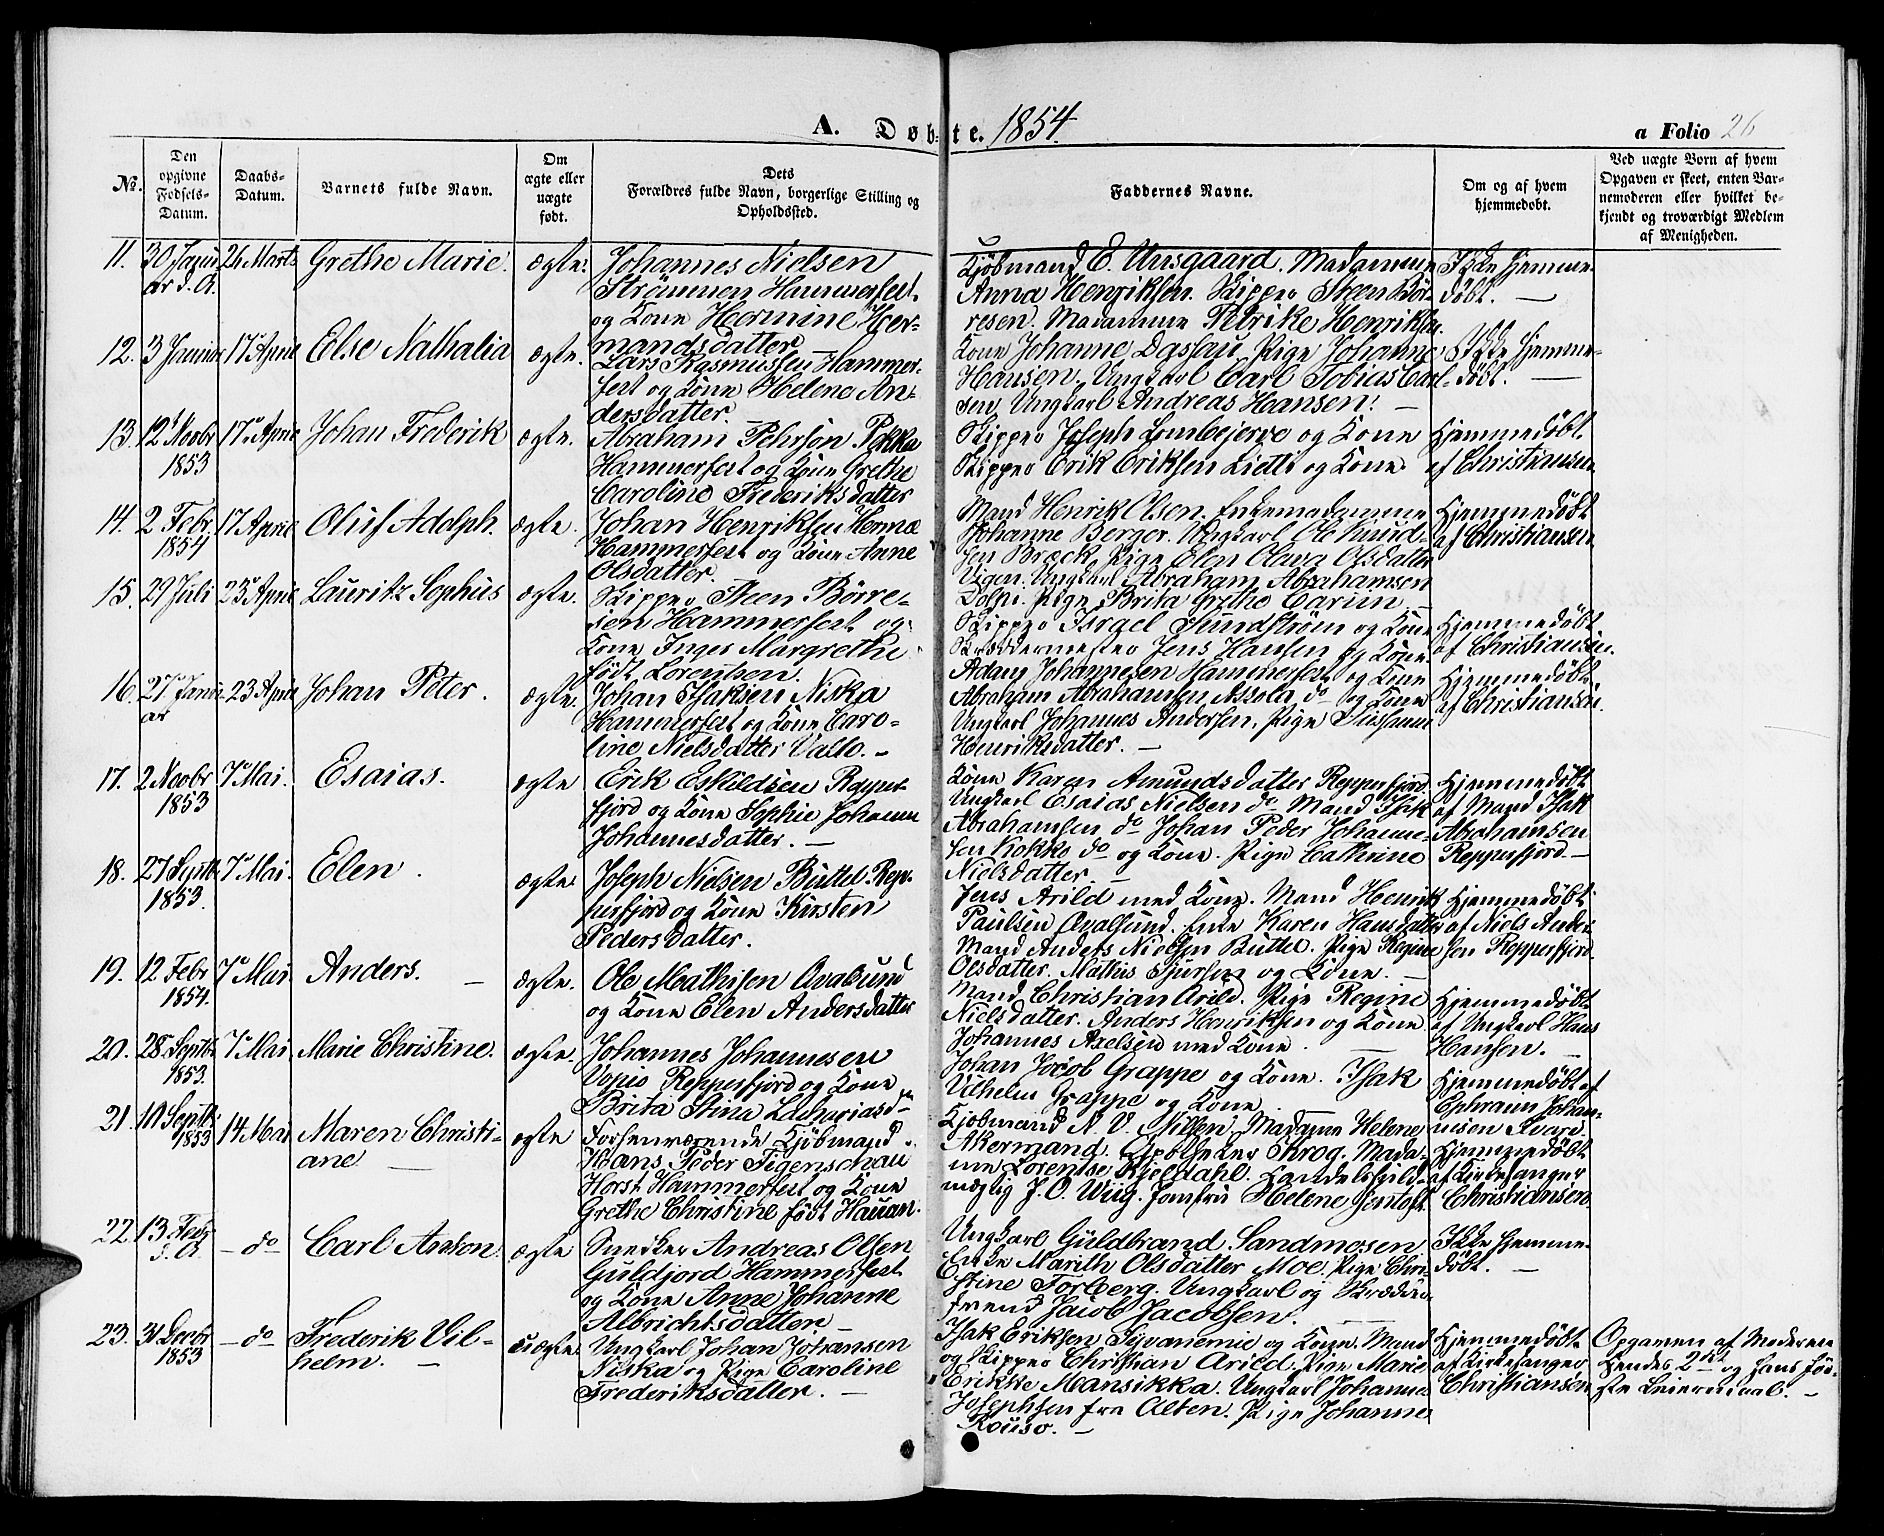 A. Døbte. 1854.
a Folio 26
No.
Den opgivne Fødsels-Datum.
Daabs-Datum.
Barnets fulde Navn.
Om ægte eller uægte født.
Dets Forældres fulde Navn, borgerlige Stilling og Opholdssted.
Faddernes Navne.
Om og af hvem hjemmedøbt.
Ved uægte Born af hvem Opgaven er skeet, enten Barnemoderen eller hvilket bekjendt og troværdigt Medlem af Menigheden.
11. 30 Januar d. A. 26 Marts Grethe Marie. ægte.
Johannes Nielsen
Strømmen Hammerfest
og Kone Hermine Her-
mandsdatter
Kjöbmand E. Unsgaard. Madamme
Anna Henriksen. Skipper Steen Bör-
resen. Madamme Petrike Henriksen.
Ikke hjemme-
döbt. —
12. 3 Januar 17 April Else Nathalia ægte.
Lars Rasmussen Hammer-
fest og Kone Helene An-
dersdatter.
Kone Johanne Dassau. Pige Johanne
Hansen. Ungkarl Carl Tobias Carl-
sen Ungkarl Andreas Hansen. —
Ikke hjemme-
döbt. —
13. 12 Novbr 1853 17 April Johan Frederik ægte.
Abraham Pehrson Pekka
Hammerfest og Kone Grethe
Caroline Frederiksdatter
Skipper Joseph og Kone
Skipper Erik Eriksen Lietti og Kone
Hjemmedöbt
af Christiansen
14. 2 Febr 1854 17 April Oluf Adolph. ægte.
Johan Henriksen
Hammerfest og Kone Anne
Olsdatter.
Mand Henrik Olsen. Enkemadamme
Johanne Berger. Ungkarl Ole Knud-
sen Bræck, Pige Elen Olava Olsdatter
Vigen. Ungkarl Abraham Abrahamsen
Dolpi. Pige Brita Grethe Cariin. —
Hjemmedöbt
af Christiansen
15. 29 Juli 23 April Lauritz Sophus ægte.
Skipper Steen Börre-
sen Hammerfest og
Kone Inger Margrethe
född Lorentsen.
Skipper Israel Sundström og Kone
Jens Hansen og Kone.
Hjemmedöbt
af Christiansen.
16. 27 Janu-
ar 23 April Johan Peter. ægte.
Johan Isaksen Niska
Hammerfest og Kone Caro-
line Nielsdatter Vallo. —
Adam Johannesen Hammerfest og Kone
Abraham Abrahamsen Assola do og Kone
Ungkarl Johannes Andersen, Pige Susanna
Henriksdatter. —
Hjemmedöbt
af Christiansen.
17. 2 Novbr 1853 7 Mai. Esaias. ægte
Erik Eskildsen Repper-
fjord og Kone Sophie Johanna
Johannesdatter. —
Kone Karen Amundsdatter Repperfjord
Ungkarl Esaias Nielsen do Mand Isak
Abrahamsen do Johan Peder Johanne-
sen Kokko do og Kone. Pige Cathrine
Nielsdatter. —
Hjemmedöbt
af Mand Isak
Abrahamsen
Repperfjord. —
18. 27 Septbr. 1853. 7 Mai. Elen. ægte.
Joseph Nielsen Buttel Rep-
perfjord og Kone Kirsten
Pedersdatter.
Jens Arild med Kone. Mand Henrik
Paulsen Qvalsund. Enke Karen Hansdatter
Mand Anders Nielsen Buttel. Pige Regine
Olsdatter. Mathis Sjursen og Kone. —
Hjemmedöbt
af Niels Ander-
sen Repperfjord.
19. 12 Febr 1854. 7 Mai. Anders. — ægte.
Ole Mathisen Qvalsund
og Kone Elen Andersdatter
Mand Christian Arild. Pige Regine
Nielsdatter. Anders Henriksen og Kone
Johannes Axelsen med Kone. —
Hjemmedöbt
af Ungkarl Hans
Hansen. —
20. 28 Septbr. 1853. 7 Mai Marie Christine. ægte.
Johannes Johannesen
Vopio Repperfjord og Kone
Brita Stina Zachariasd.
Johan Jocob Grappe og Kone. Isak
Vilhelm Grappe og Kone.
Hjemmedöbt af
Ephraim Johan-
nesen Kvare.
21. 10 Septbr. 1853 14 Mai Maren Christi-
ane — ægte
Forhenværende Kjöbmand
Hans Peder Figenschau
Horst Hammerfest og Kone
Grethe Christine födt Hauan.
Kjöbmand N. V. Nilsen, Madame Helene
Akermand. Apotheker Krog. Mada-
me Lorentse Kjeldahl. Handelsfuld-
mægtig J. O. Wiig. Jomfru Helene Jentoft.
Hjemmedöbt
af Kirkesanger
Christiansen.
22. 13 Febr d. A. — do Carl Anton ægte
Snedker Andreas Olsen
Guldjord Hammerfest
og Kone Anne Johanne
Albrichtsdatter —
Ungkarl Guldbrand Sandmosen.
Enke Marith Olsdatter Moe. Pige Chri-
stine Torberg. Ungkarl og Skrædder-
svend Jacob Jacobsen. —
Ikke hjemme-
döbt. —
23. 31 Decbr 1853 — do Frederik Vil-
helm. — uægte.
Ungkarl Johan Johansen
Niska og Pige Caroline
Frederiksdatter. —
Isak Eriksen og Kone. Mand
og Skipper Christian Arild. Pige Marie
Erikke Mansikka. Ungkarl Johannes
Josephsen fra Alten. Pige Johanne
Rouso. —
Hjemmedöbt
af Kirkesanger
Christiansen
Opgaven af Moderen
Hendes 2det og hans för-
ste Leiermaal. —